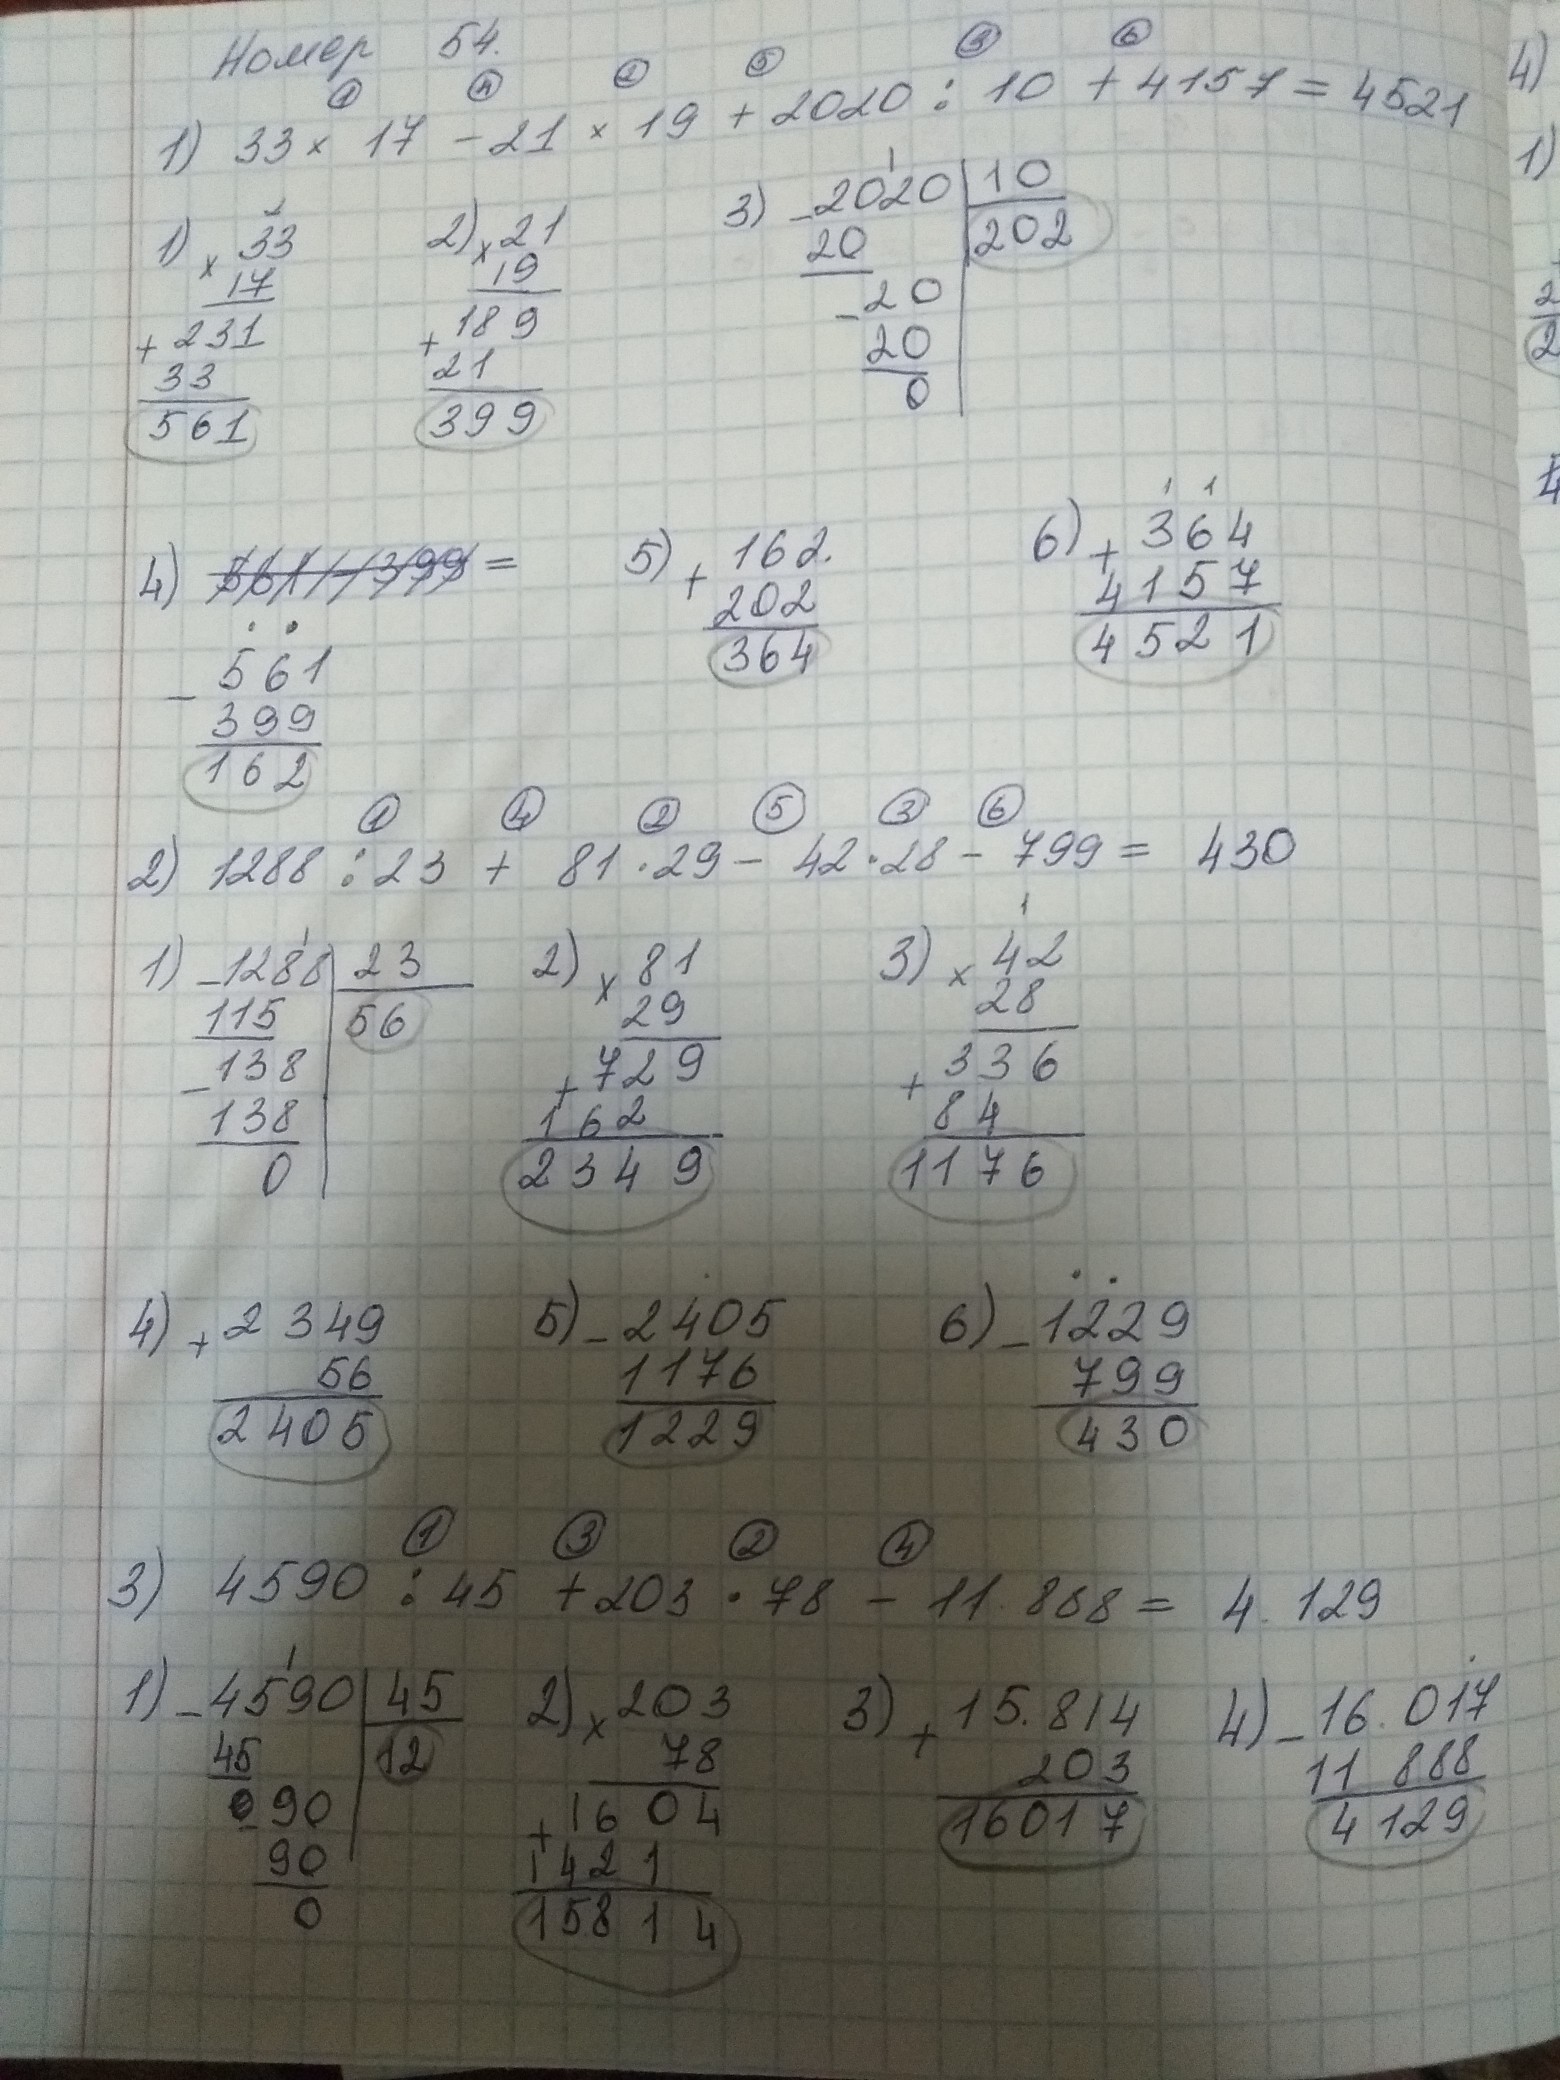 Номер 54.
① ④ ② ⑤ ③ ⑥
1) 33 × 17 - 21 × 19 + 2020 : 10 + 4157 = 4521
1) × 33
17
+ 231
33
561
2) × 21
19
+ 189
21
399
3) - 2020 | 10
20 202
- 20
20
0
4) 561 - 399 =
- 561
399
162
5) + 162.
202
364
1 1
6) + 364
4157
4521
① ④ ② ⑤ ③ ⑥
2) 1288 : 23 + 81 · 29 - 42 · 28 - 799 = 430
1) - 1288 | 23
115 56
- 138
138
0
2) × 81
29
+ 729
162
2349
1
3) × 42
28
+ 336
84
1176
4) + 2349
56
2405
5) - 2405
1176
1229
6) - 1229
799
430
① ③ ② ④
3) 4590 : 45 + 203 · 78 - 11.888 = 4.129
1) - 4590 | 45
45 12
- 090
90
0
2) × 203
78
+ 1604
1421
15814
3) + 15.814
203
16017
4) - 16.017
11 888
4129
4)
1)
2
2